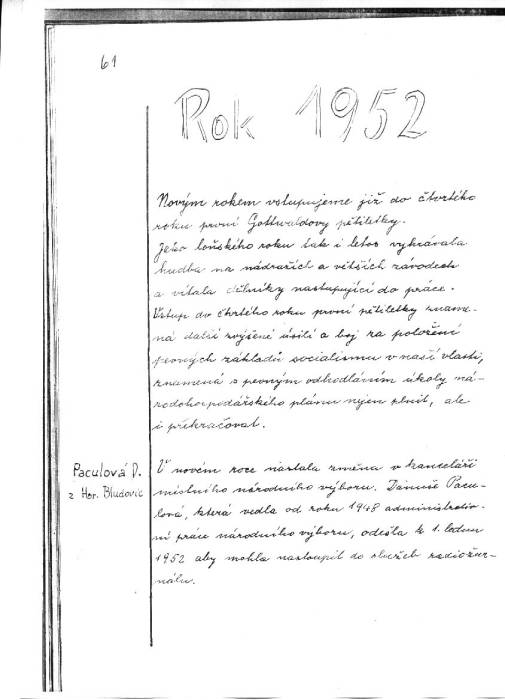 61
Rok 1952
Novým rokem vstupujeme již do čtvrtého
roku první Gottwaldovy pětiletky.
Jako loňského roku tak i letos vyhrávala
hudba na nádražích a větších závodech
a vítala dělníky nastupující do práce.
Vstup do čtvrtého roku první pětiletky zname-
ná další zvýšené úsilí a boj za položení
pevných základů socialismu v naší vlasti,
znamená s pevným odhodláním úkoly ná-
rodohospodářského plánu nejen plnit, ale
i překračovat.
Paculová D.
z Hor. Bludovic
V novém roce nastala změna v kanceláři
místního národního výboru. Danuše Pacu-
lová, která vedla od roku 1948 administrativ-
ní práce národního výboru, odešla k 1. lednu
1952 aby mohla nastoupit do služeb radiožur-
nálu.